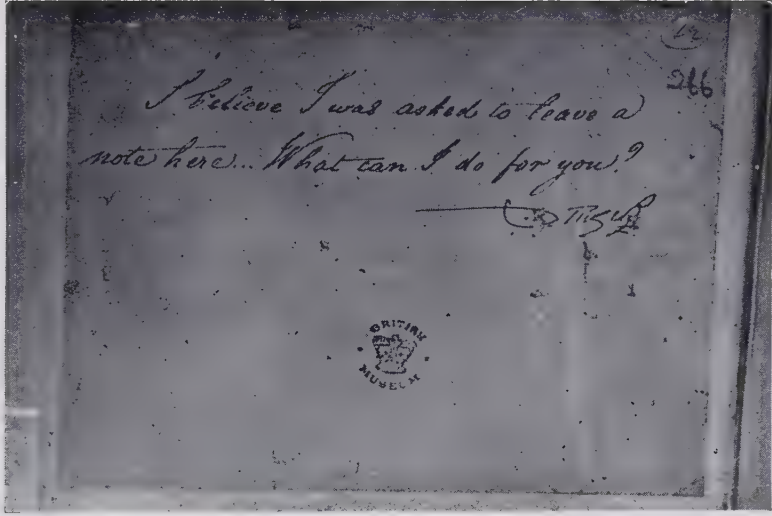 12
266
I believe I was asked to leave a
note here... What can I do for you?
BRITISH
MUSEUM